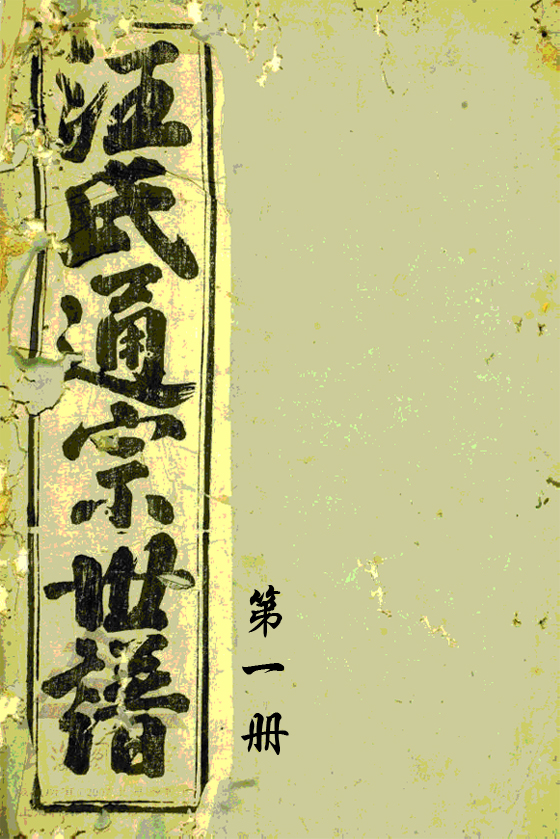 汪氏通宗世譜
第一册